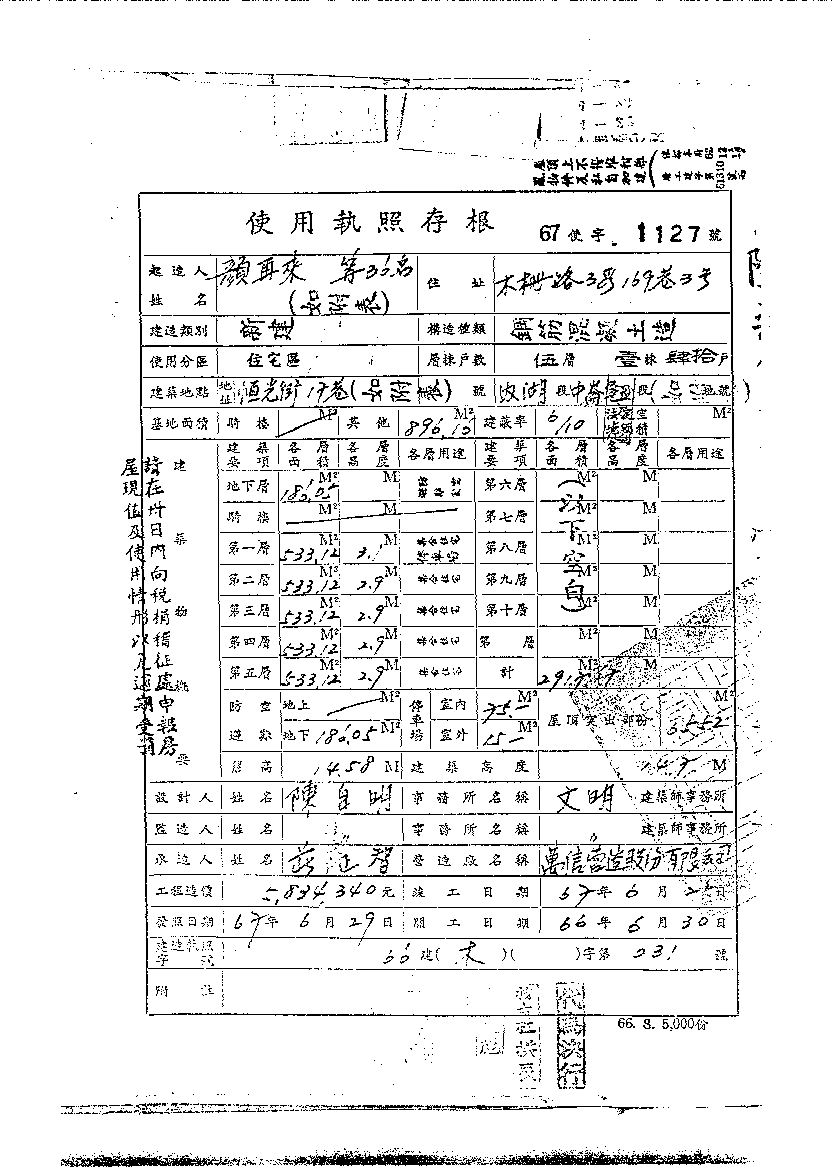 使用執照存根
67使字 1127號
起造人姓名 顏再來 等36名 (如附表) 住址 木柵路3段169巷3号
建造類別 新建 構造種類 鋼筋混凝土造
使用分區 住宅區 層棟戶數 伍層 壹棟 肆拾戶
建築地點 地址 恒光街17巷(如附表)號 內湖段中崙 小段 地號
基地面積 騎樓 M² 其他 896.13 M² 建蔽率 6/10 法定空地面積 M²
建築要項 各層面積 各層高度 各層用途 建築要項 各層面積 各層高度 各層用途
地下層 186.05 M² M 第六層 M² M
騎樓 M² M 第七層 M² M
第一層 533.12 M² 3.1 M 第八層 M² M
第二層 533.12 M² 2.9 M 第九層 M² M
第三層 533.12 M² 2.9 M 第十層 M² M
第四層 533.12 M² 2.9 M 第 層 M² M
第五層 533.12 M² 2.9 M 計 M² M
(以下空白)
防空避難 地上 M² 停車場 室內 75.— M² 屋頂突出部份 65.52 M²
地下 186.05 M² 室外 15.— M²
總高 14.58 M 建築高度 14.7 M
設計人 姓名 陳自明 事務所名稱 文明 建築師事務所
監造人 姓名 〃 事務所名稱 〃 建築師事務所
承造人 姓名 營造廠名稱 萬信營造股份有限公司
工程造價 5,834,340元 竣工日期 67年6月2 日
發照日期 67年6月29日 開工日期 66年6月30日
建造執照字號 66建(木)( )字第031號
附註
建築物概要
請在卅日內向稅捐稽征處申報房
屋現值及使用情形以免逾期受罰
66. 8. 5,000份
代為決行